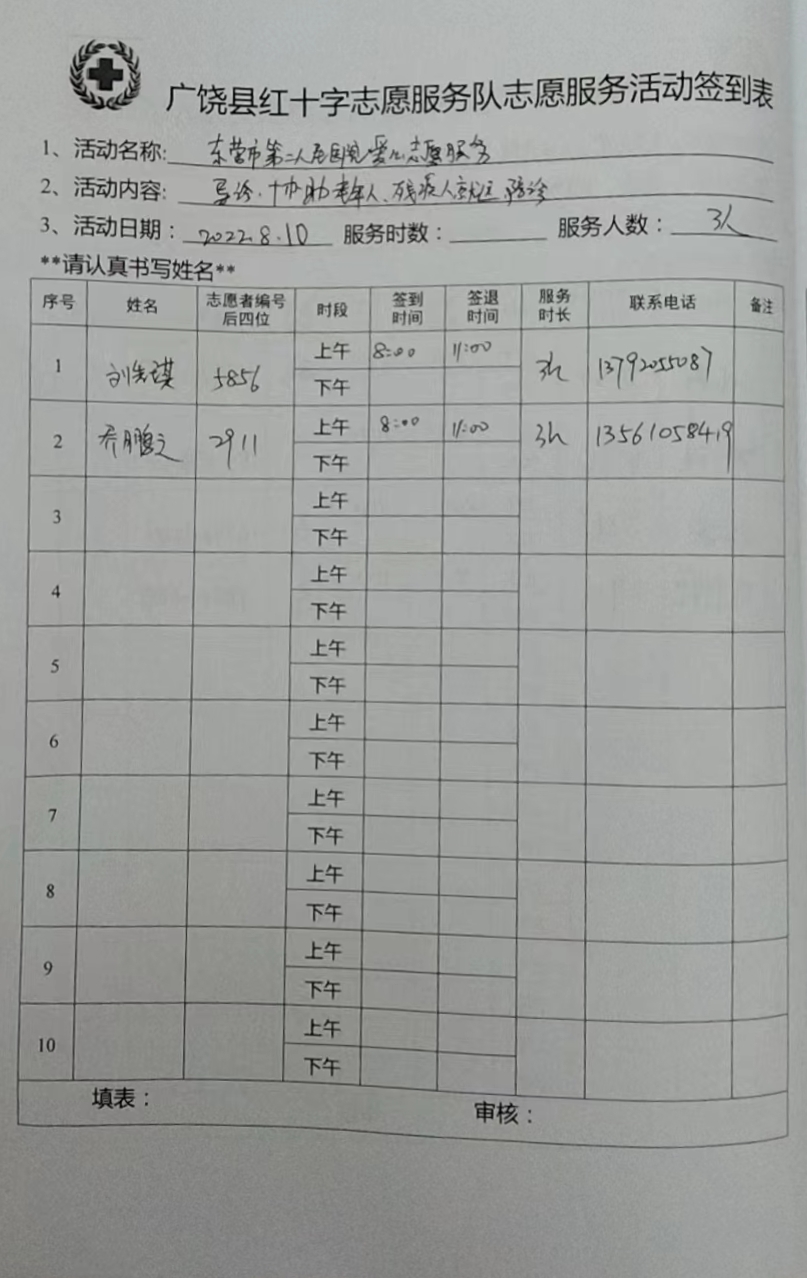 广饶县红十字志愿服务队志愿服务活动签到表
1、活动名称: 东营市第二人民医院爱心志愿服务
2、活动内容: 导诊、协助老年人、残疾人就医 陪诊
3、活动日期: 2022.8.10 服务时数: 服务人数: 3人
**请认真书写姓名**
序号 姓名 志愿者编号后四位 时段 签到时间 签退时间 服务时长 联系电话 备注
1 5856 上午 8:00 11:00 3h 13792055087
下午
2 乔鹏之 2911 上午 8:00 11:00 3h 13561058419
下午
3 上午
下午
4 上午
下午
5 上午
下午
6 上午
下午
7 上午
下午
8 上午
下午
9 上午
下午
10 上午
下午
填表: 审核: